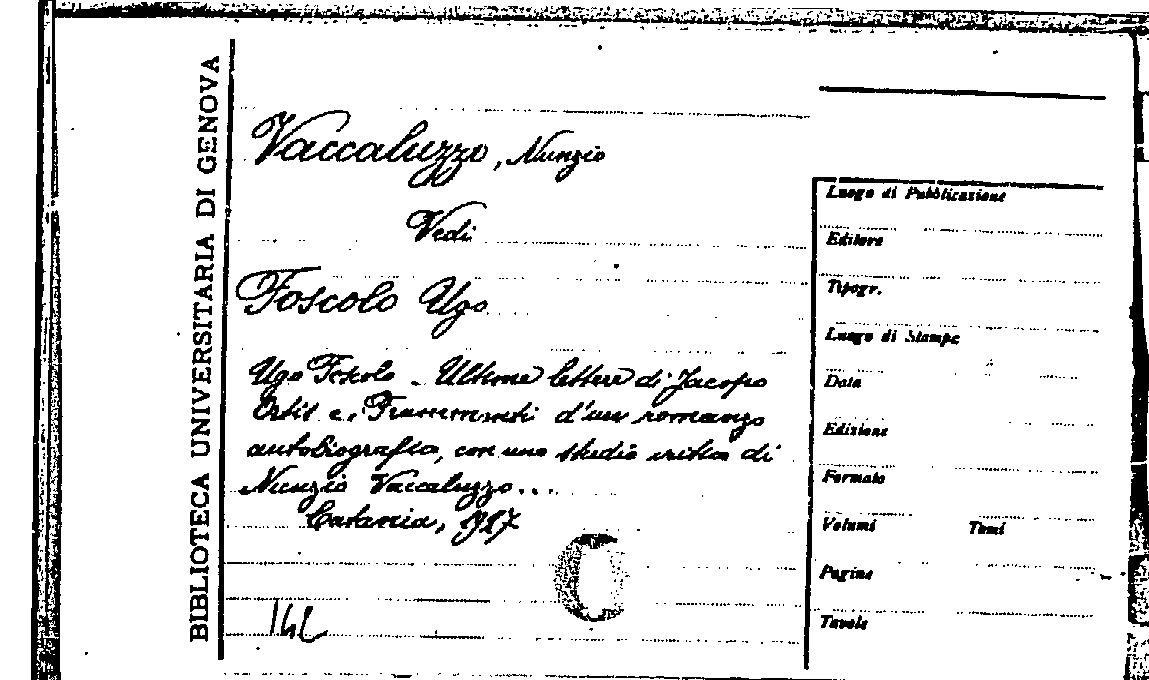 BIBLIOTECA UNIVERSITARIA DI GENOVA
Vaccaluzzo, Nunzio
Vedi
Foscolo Ugo
Ugo Foscolo - Ultime lettere di Jacopo
Ortis e. Frammenti d'un romanzo
autobiografico, con uno studio critico di
Nunzio Vaccaluzzo...
Catania, 1927
Luogo di Pubblicazione
Editore
Tipogr.
Luogo di Stampa
Data
Edizione
Formato
Volumi Tomi
Pagine
Tavole